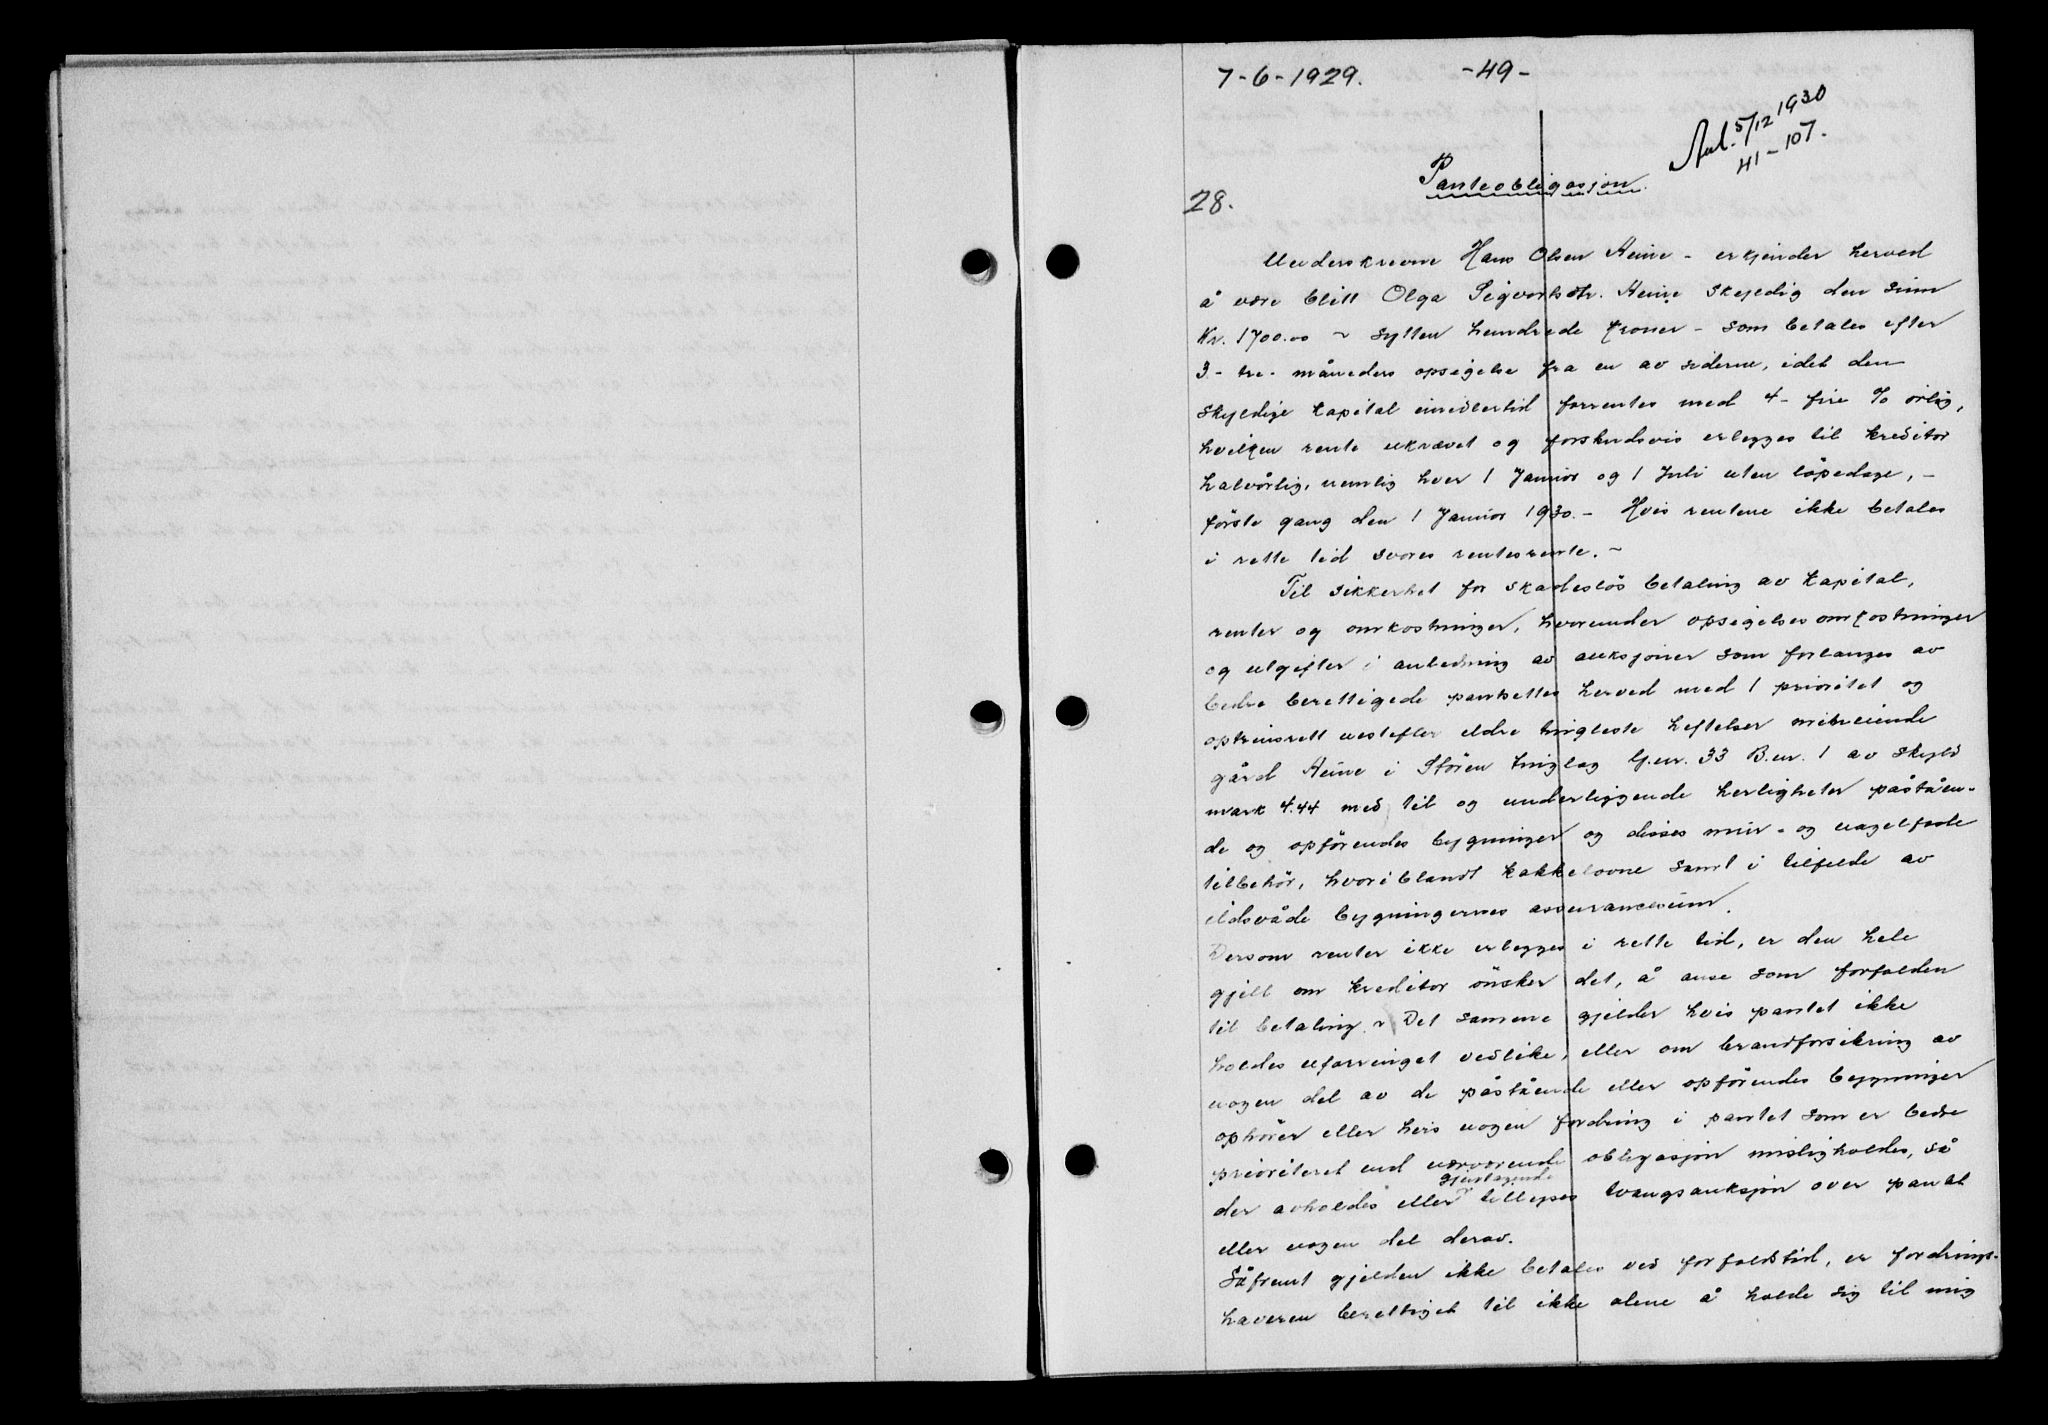 7-6-1929. -49-
Avl. 5/12 1930
41-107.
Panteobligasjon.
28.
Underskrevne Hans Olsen Heine - erkjender herved
å være blitt Olga Sigvartsdtr. Heine skyldig den sum
Kr. 1700.00 - sytten hundrede kroner - som betales efter
3 - tre - måneders opsigelse fra en av siderne, idet den
skyldige kapital imidlertid forrentes med 4 - fire % årlig,
hvilken rente ukrævet og forskudsvis erlegges til kreditor
halvårlig, nemlig hver 1 Januar og 1 Juli uten löpedage, -
første gang den 1 Januar 1930. - Hvis rentene ikke betales
i rette tid svares rentesrente. -
Til sikkerhet for skadeslös betaling av kapital,
renter og omkostninger, hvorunder opsigelsesomkostninger
og utgifter i anledning av auksjoner som forlanges av
bedre berettigede pantsettes herved med 1 prioritet og
optrinsrett nestefter eldre tingleste heftelser min eiende
gård Heine i Stören tinglag G.nr. 33 B.nr. 1 av skyld
mark 4.44 med til og underliggende herligheter påståen-
de og opförendes bygninger og disses mur- og nagelfaste
tilbehör, hvoriblandt kakkelovne samt i tilfelde av
ildsvåde bygningernes assurancesum.
Dersom renter ikke erlegges i rette tid, er den hele
gjeld om kreditor önsker det, å anse som forfalden
til betaling. - Det samme gjelder hvis pantet ikke
holdes uforringet vedlike, eller om brandforsikring av
nogen del av de påstående eller opförendes bygninger
ophører eller hvis nogen fordring i pantet som er bedre
prioriteret end nærværende obligasjon misligholdes, så
der avholdes eller gjentagende tillyses tvangsauksjon over pantet
eller nogen del derav.
Såfremt gjelden ikke betales ved forfaldstid, er fordrings-
haveren berettiget til ikke alene å holde sig til mig